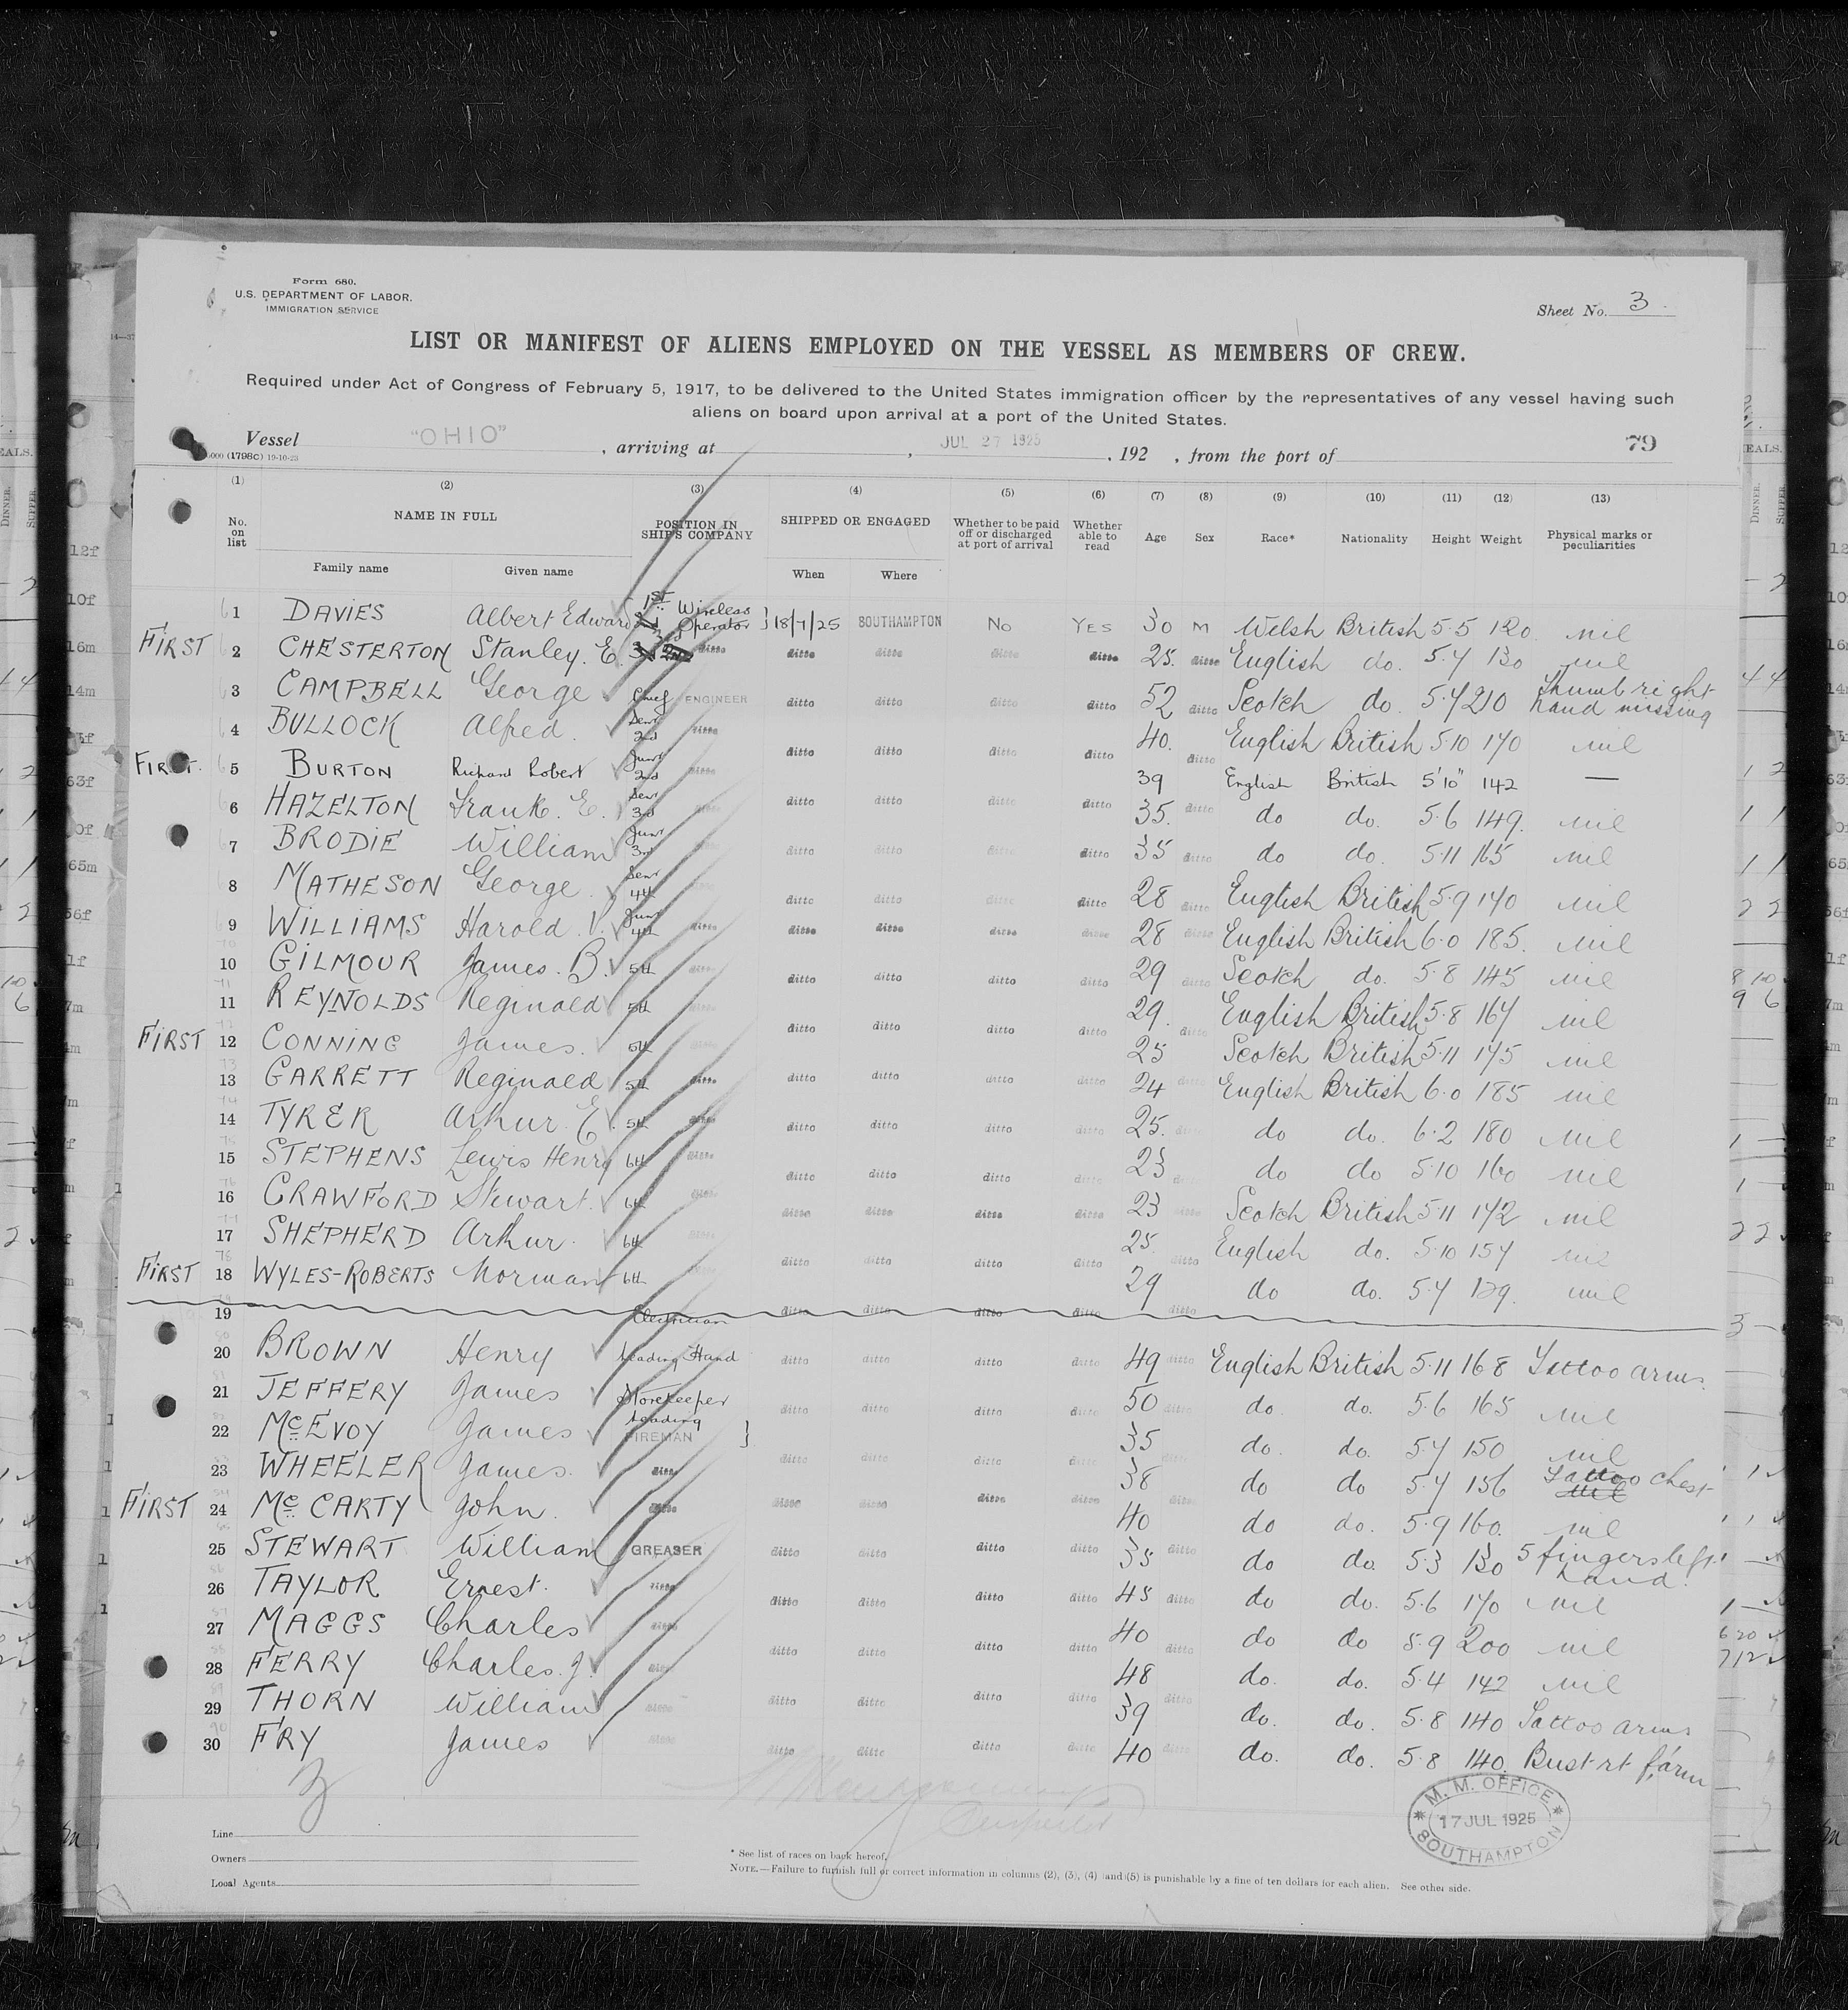 Form 680.
U.S. DEPARTMENT OF LABOR.
IMMIGRATION SERVICE
Sheet No. 3
LIST OR MANIFEST OF ALIENS EMPLOYED ON THE VESSEL AS MEMBERS OF CREW.
Required under Act of Congress of February 5, 1917, to be delivered to the United States immigration officer by the representatives of any vessel having such
aliens on board upon arrival at a port of the United States.
Vessel "OHIO", arriving at , JUL 27 1925, 192 , from the port of 79
000 (1798C) 19-10-23
(1) (2) (3) (4) (5) (6) (7) (8) (9) (10) (11) (12) (13)
No. on list NAME IN FULL POSITION IN SHIP'S COMPANY SHIPPED OR ENGAGED Whether to be paid off or discharged at port of arrival Whether able to read Age Sex Race* Nationality Height Weight Physical marks or peculiarities
Family name Given name When Where
1 DAVIES Albert Edward 1ST Wireless Operator } 18/7/25 SOUTHAMPTON No YES 30 M Welsh British 5.5 120 nil
FIRST 2 CHESTERTON Stanley. E. ditto ditto ditto ditto ditto 25. ditto English do. 5.4 130 nil
3 CAMPBELL George Chief ENGINEER ditto ditto ditto ditto 52 ditto Scotch do. 5.7 210 Thumb right hand missing
4 BULLOCK Alfred. Senr 2nd ditto ditto ditto ditto ditto 40. ditto English British 5.10 170 nil
FIRST. 5 BURTON Richard Robert Junr 2nd ditto 39 English British 5'10" 142 —
6 HAZELTON Frank. E. Senr 3rd ditto ditto ditto ditto ditto 35. ditto do do. 5.6 149. nil
7 BRODIE William Junr 3rd ditto ditto ditto ditto 35 ditto do do. 5.11 165 nil
8 MATHESON George Senr 4th ditto ditto ditto ditto 28 ditto English British 5.9 140 nil
9 WILLIAMS Harold. V. Junr 4th ditto ditto ditto ditto ditto 28 ditto English British 6.0 185. nil
10 GILMOUR James. B. 5th ditto ditto ditto ditto ditto 29 ditto Scotch do. 5.8 145 nil
11 REYNOLDS Reginald 5th ditto ditto ditto ditto 29. ditto English British 5.8 164 nil
FIRST 12 CONNING James. 5th 25 Scotch British 5.11 175 nil
13 GARRETT Reginald 5th ditto ditto ditto ditto ditto 24 ditto English British 6.0 185 nil
14 TYRER Arthur. E. 5th ditto ditto ditto ditto ditto 25. ditto do do. 6.2 180 nil
15 STEPHENS Lewis Henry 6th ditto ditto ditto ditto 23 do do 5.10 160 nil
16 CRAWFORD Stewart. 6th ditto ditto ditto ditto ditto 23 ditto Scotch British 5.11 172 nil
17 SHEPHERD Arthur. 6th ditto ditto ditto ditto ditto 25. ditto English do. 5.10 154 nil
FIRST 18 WYLES-ROBERTS Norman 6th 29 do do. 5.4 129. nil
19 Electrician ditto ditto ditto ditto ditto
20 BROWN Henry Leading Hand ditto ditto ditto ditto 49 ditto English British 5.11 168 Tattoo arms.
21 JEFFERY James Storekeeper ditto ditto ditto ditto 50 ditto do. do. 5.6 165 nil
22 McEVOY James Leading FIREMAN } 35 do. do. 5.4 150 nil
23 WHEELER James. ditto ditto ditto ditto ditto 38 do do 5.4 156 Tattoo chest
FIRST 24 Mc CARTY John. ditto ditto ditto ditto ditto 40 ditto do do. 5.9 160. nil
25 STEWART William GREASER ditto ditto ditto ditto 35 ditto do do. 5.3 130 5 fingers left hand.
26 TAYLOR Ernest. ditto ditto ditto ditto ditto 45 ditto do do. 5.6 170 nil
27 MAGGS Charles ditto 40 do do 5.9 200 nil
28 FERRY Charles. J. ditto ditto ditto ditto ditto 48 ditto do. do. 5.4 142 nil
29 THORN William ditto ditto ditto ditto ditto 39 ditto do. do. 5.8 140 Tattoo arms
30 FRY James ditto ditto ditto ditto ditto 40 ditto do. do. 5.8 140. Bust rt f'arm
M. M. OFFICE
17 JUL 1925
SOUTHAMPTON
Line
Owners
Local Agents
* See list of races on back hereof.
NOTE.—Failure to furnish full or correct information in columns (2), (3), (4) and (5) is punishable by a fine of ten dollars for each alien. See other side.